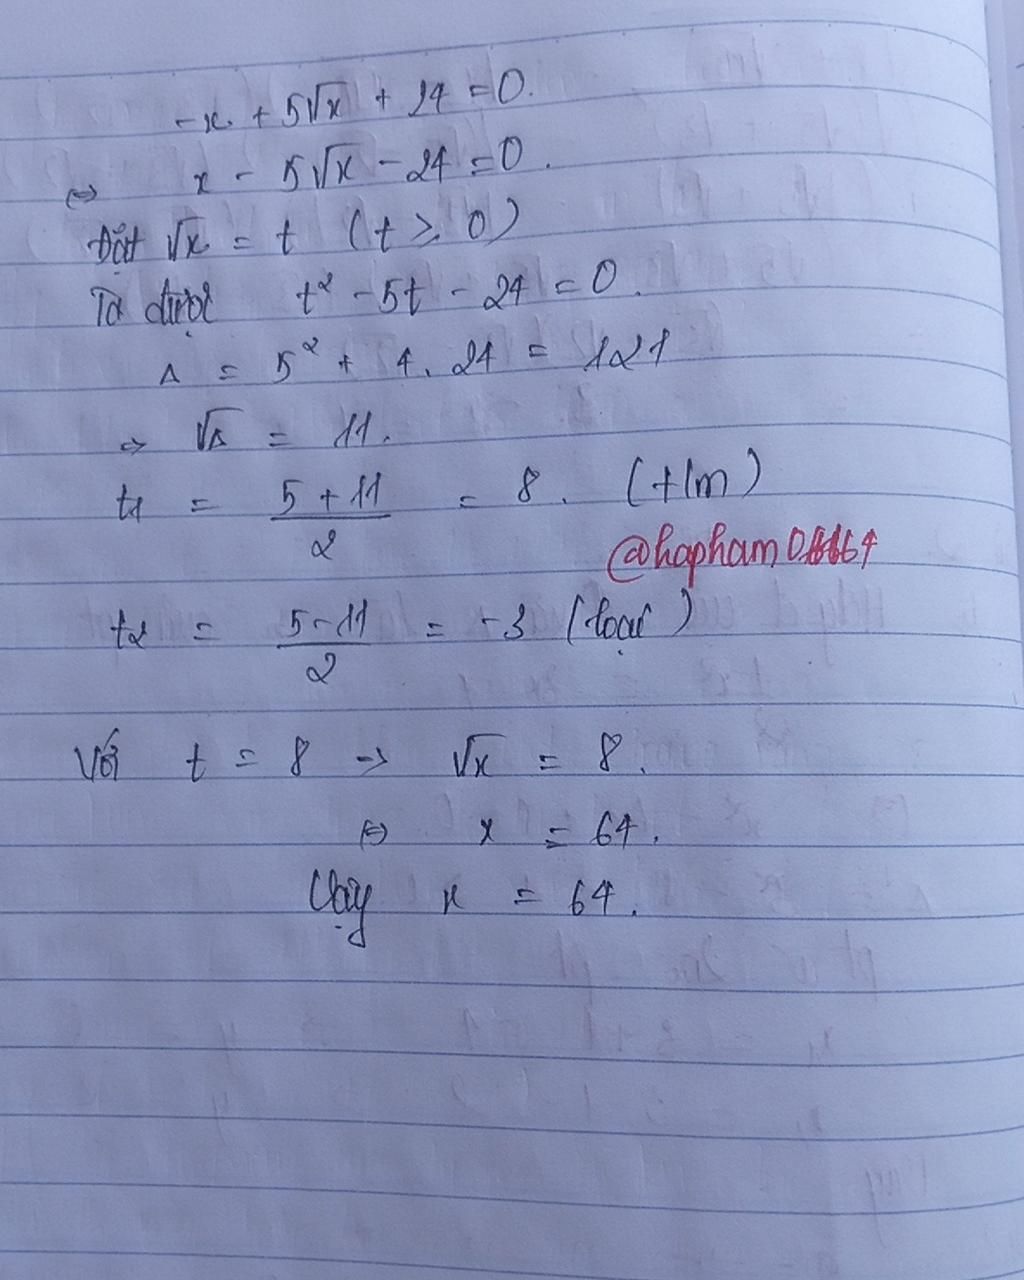 -x + 5√x + 24 = 0.
⇔ x - 5√x - 24 = 0.
Đặt √x = t (t ≥ 0)
Ta được t² - 5t - 24 = 0.
Δ = 5² + 4.24 = 121
⇒ √Δ = 11.
t1 = (5 + 11)/2 = 8. (t/m)
t2 = (5 - 11)/2 = -3 (loại)
Với t = 8 → √x = 8.
⇔ x = 64.
Vậy x = 64.